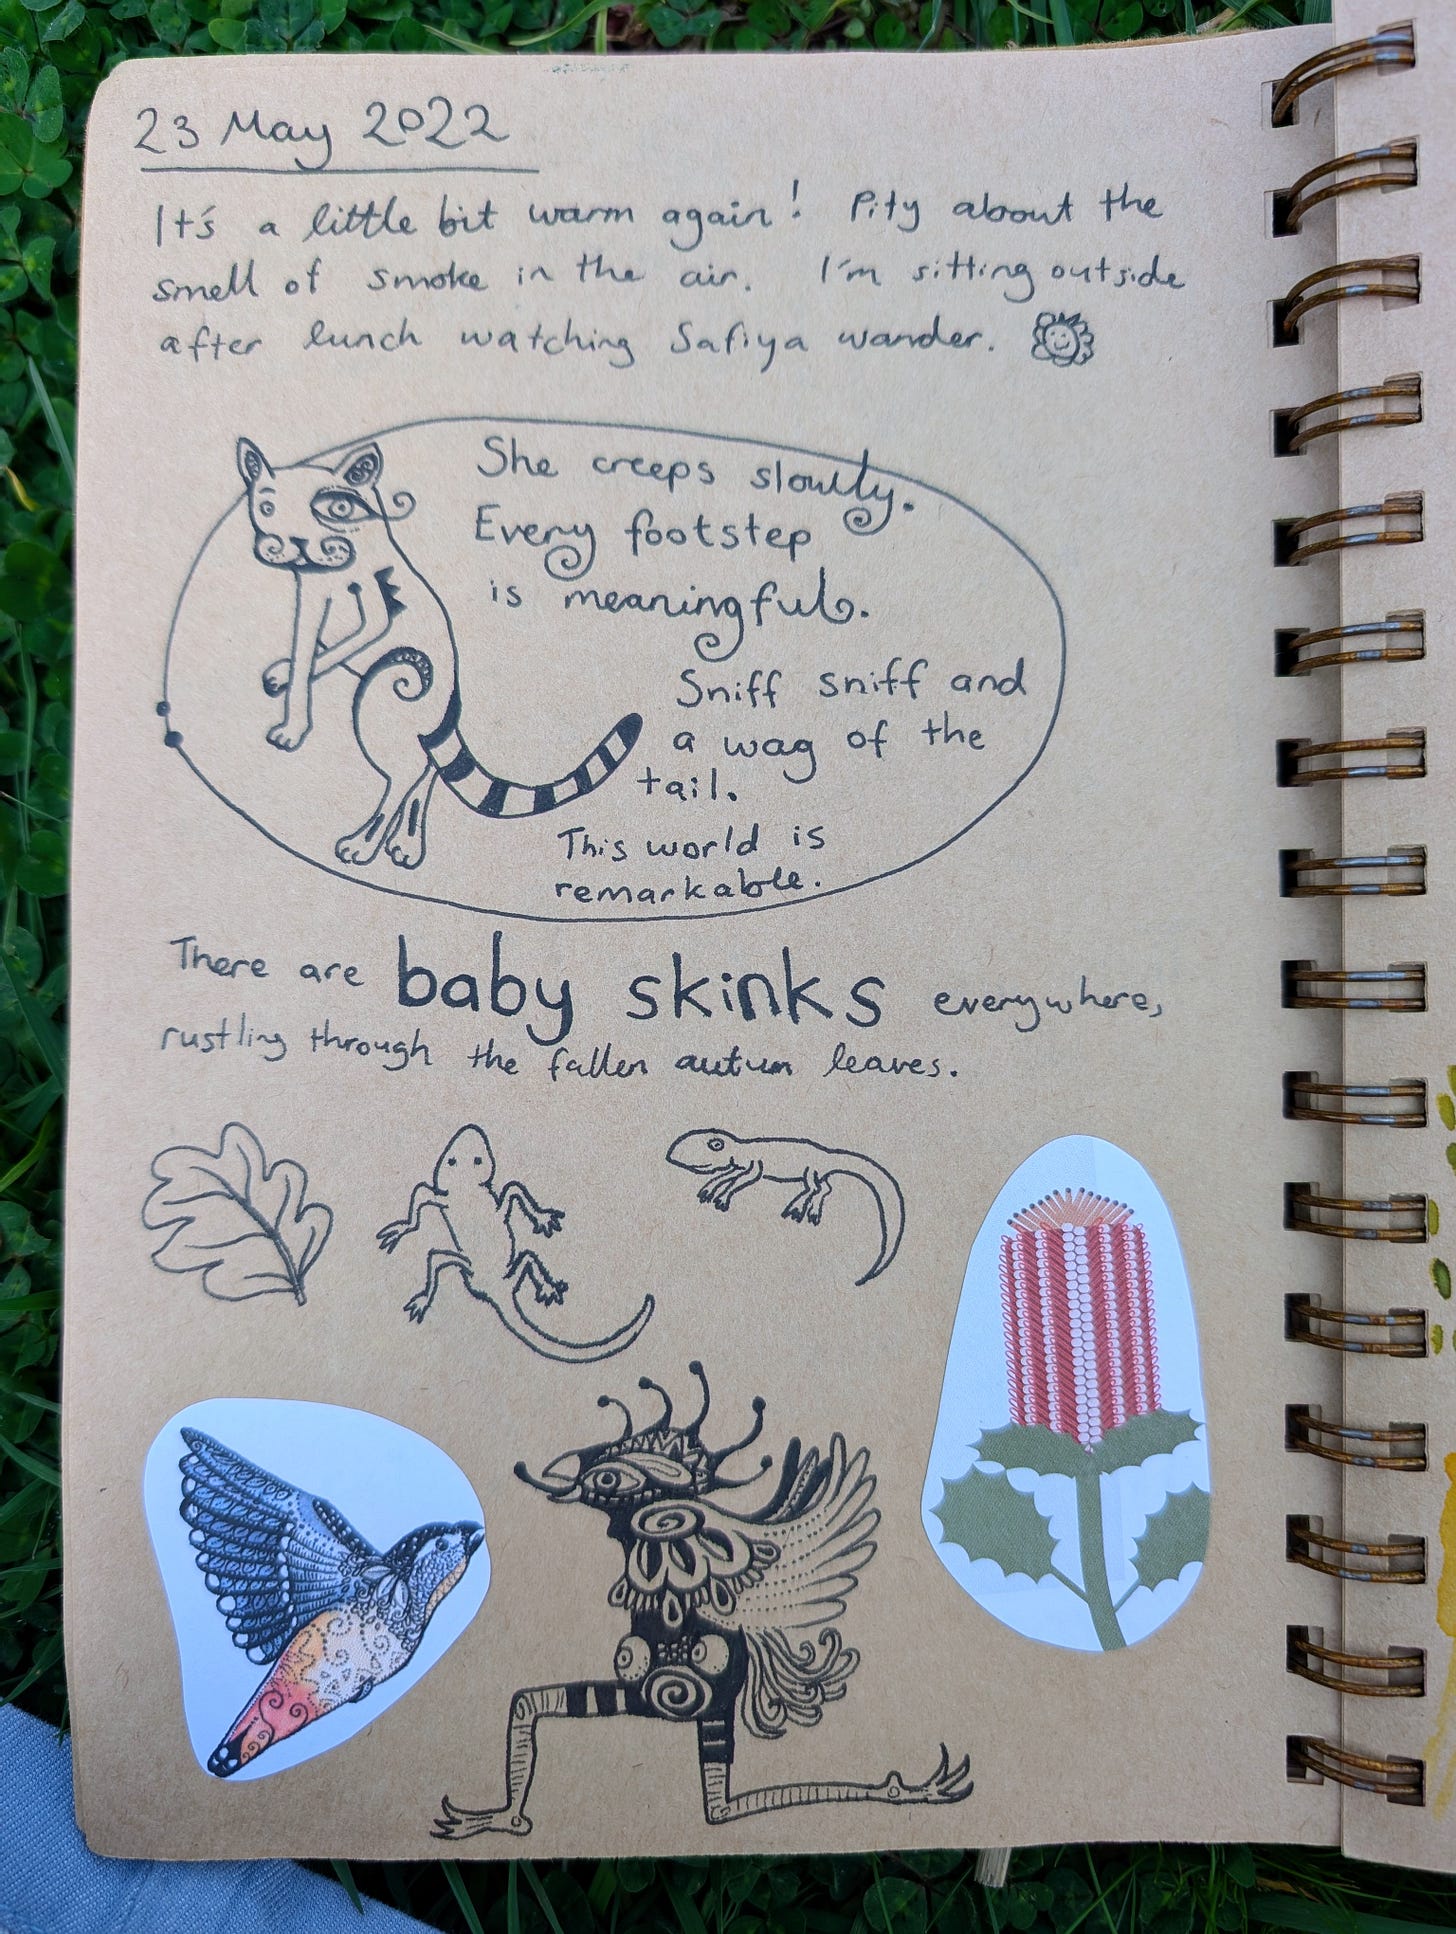 23 May 2022
It's a little bit warm again! Pity about the
smell of smoke in the air. I'm sitting outside
after lunch watching Safiya wander.
She creeps slowly.
Every footstep
is meaningful.
Sniff sniff and
a wag of the
tail.
This world is
remarkable.
There are baby skinks everywhere,
rustling through the fallen autum leaves.